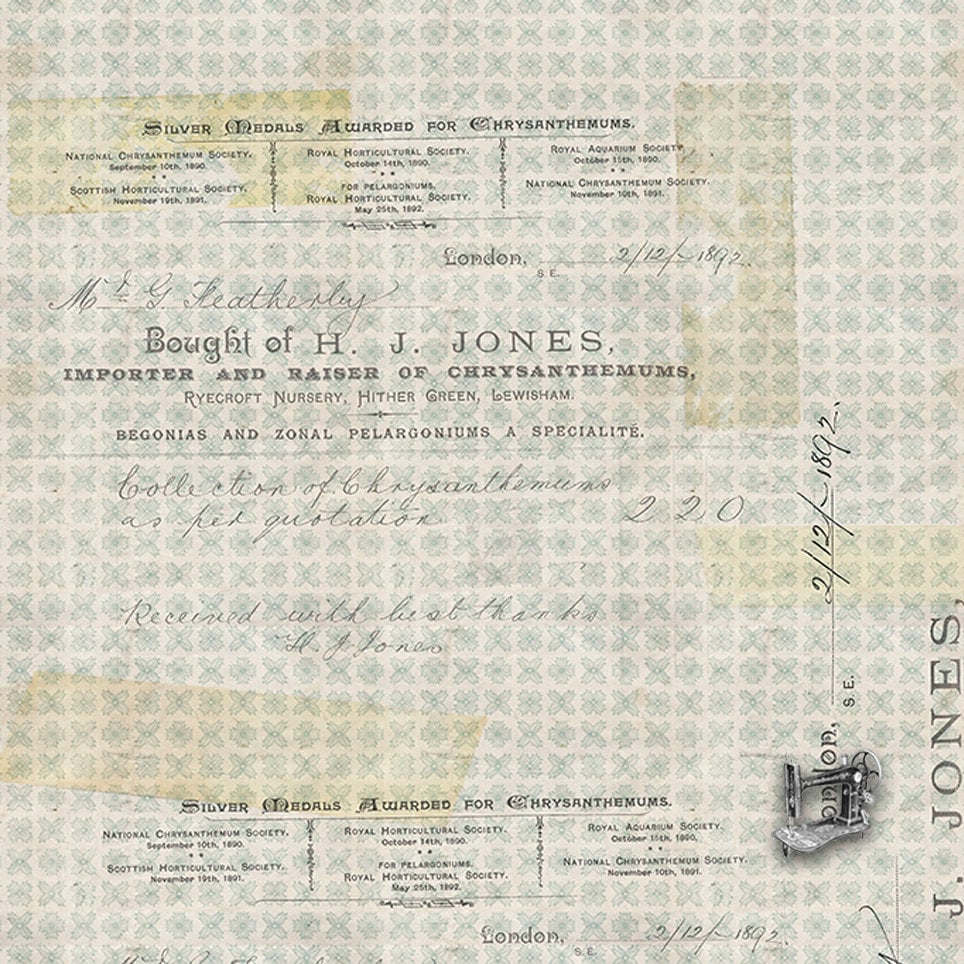 Silver Medals Awarded for Chrysanthemums.
National Chrysanthemum Society.
September 10th, 1890.
Scottish Horticultural Society.
November 19th, 1891.
Royal Horticultural Society.
October 14th, 1890.
for Pelargoniums.
Royal Horticultural Society.
May 25th, 1892.
Royal Aquarium Society.
October 15th, 1890.
National Chrysanthemum Society.
November 10th, 1891.
London, 2/12/- 1892.
S.E.
Mr. G Featherley
Bought of H. J. JONES,
IMPORTER AND RAISER OF CHRYSANTHEMUMS,
Ryecroft Nursery, Hither Green, Lewisham.
BEGONIAS AND ZONAL PELARGONIUMS A SPECIALITÉ.
Collection of Chrysanthemums
as per quotation 2 2 0
Received with best thanks
H. J. Jones
2/12/- 1892.
S.E.
ondon,
J. JONES,
Silver Medals Awarded for Chrysanthemums.
National Chrysanthemum Society.
September 10th, 1890.
Scottish Horticultural Society.
November 19th, 1891.
Royal Horticultural Society.
October 14th, 1890.
for Pelargoniums.
Royal Horticultural Society.
May 25th, 1892.
Royal Aquarium Society.
October 15th, 1890.
National Chrysanthemum Society.
November 10th, 1891.
London, 2/12/- 1892.
S.E.